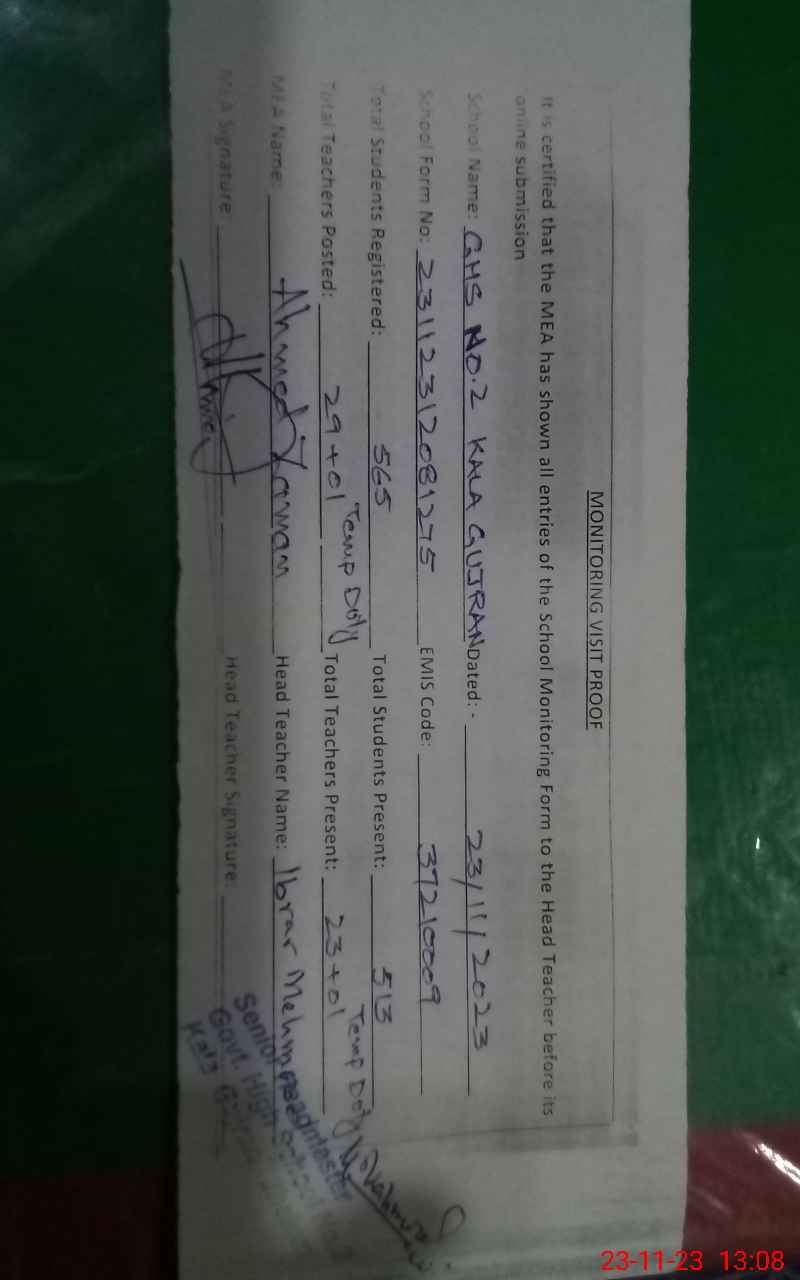 MONITORING VISIT PROOF
It is certified that the MEA has shown all entries of the School Monitoring Form to the Head Teacher before its
online submission
School Name: GHS NO.2 KALA GUJRAN Dated:- 23/11/2023
School Form No: EMIS Code: 37210009
Total Students Registered: 565 Total Students Present: 513
Total Teachers Posted: 29+01 Temp Duty Total Teachers Present: 23+01 Temp Duty
MEA Name: Ahmed Zaman Head Teacher Name: Ibrar Mehm
MEA Signature: Head Teacher Signature:
Senior Headmaster
Govt. High
Kala
23-11-23 13:08